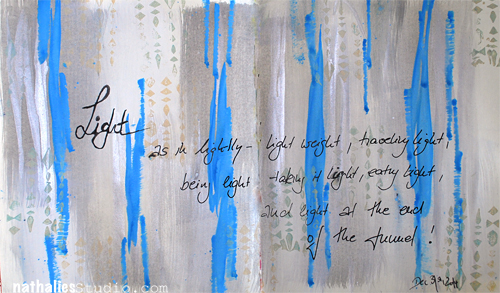 Light
as in lightly - light weight, traveling light,
being light - taking it light, eating light,
and light at the end
of the tunnel!
Dec
nathaliesStudio.com